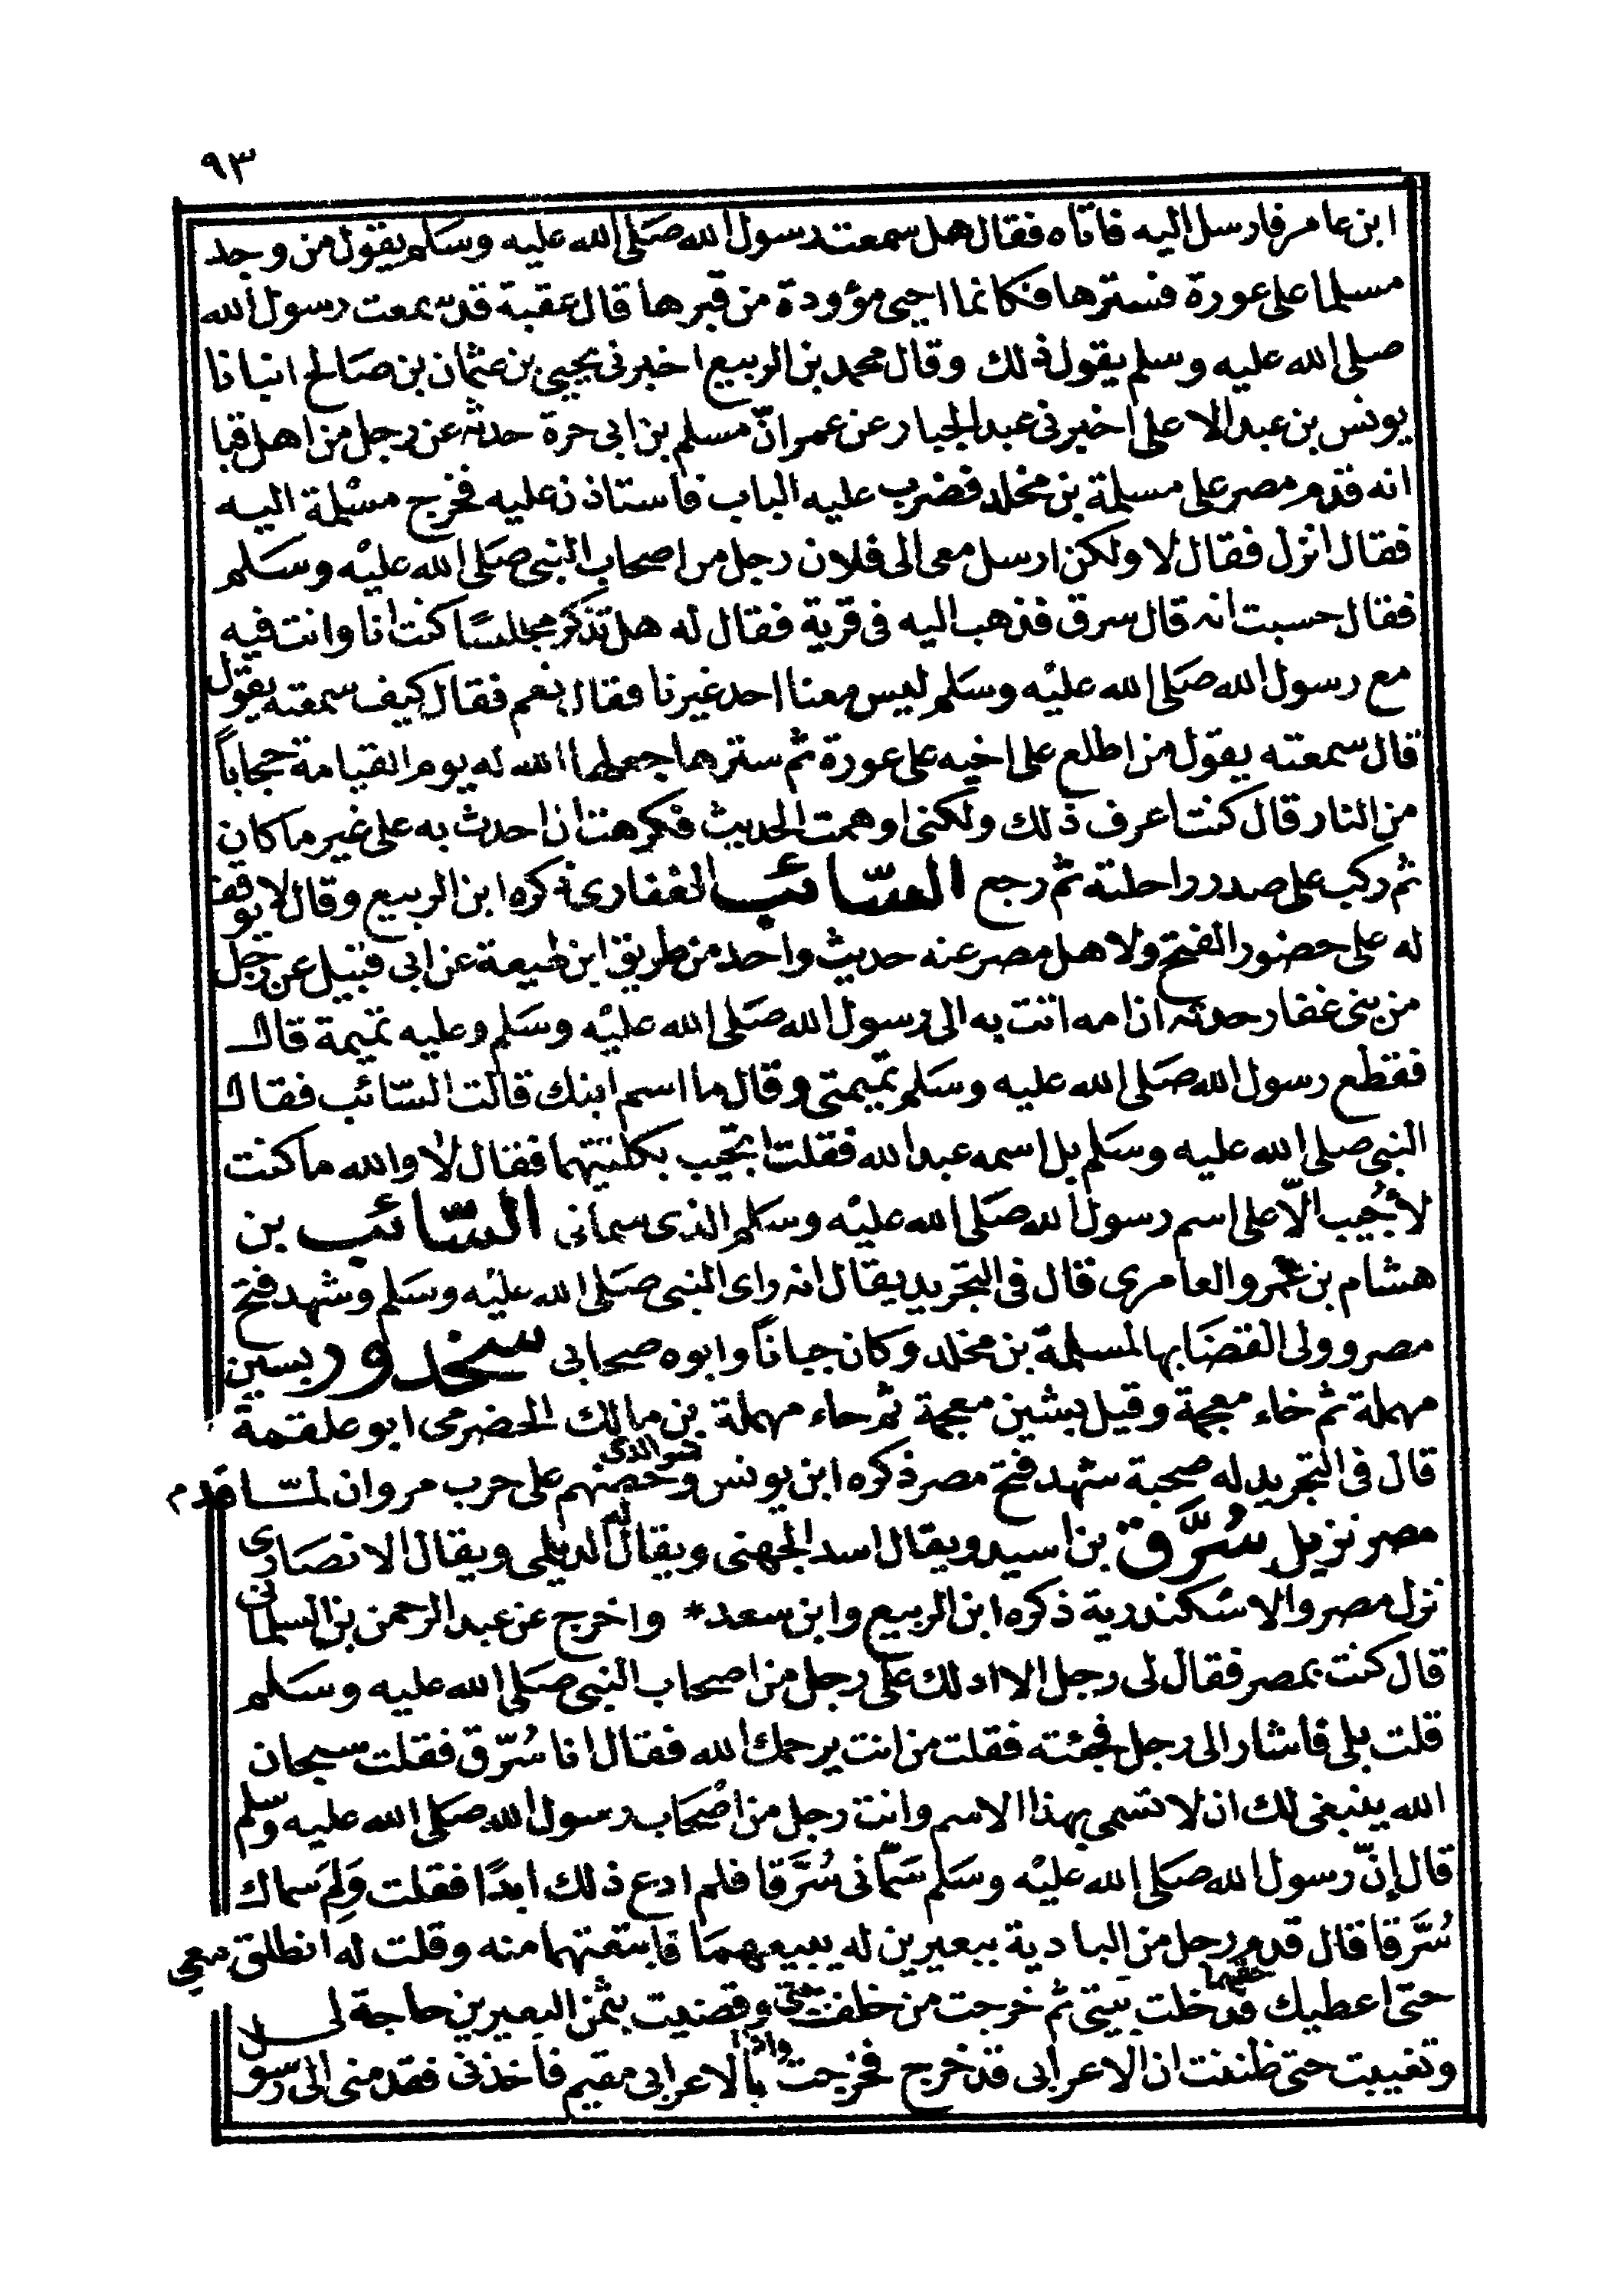 ٩٣
ابن عامر فارسل اليه فاتاه فقال هل سمعت رسول الله صلى الله عليه وسلم يقول من وجد
مسلما على عورة فسترها فكانما احيى مؤودة من قبرها قال عقبة قد سمعت رسول الله
صلى الله عليه وسلم يقول ذلك وقال محمد بن الربيع اخبرنى يحيى بن عثمان بن صالح انبانا
يونس بن عبد الاعلى اخبرنى عبد الجبار عن عمر انّ مسلم بن ابى حرة حدثه عن رجل من اهل قبا
انه قدم مصر على مسلمة بن مخلد فضرب عليه الباب فاستاذن عليه فخرج مسْلمة اليه
فقال انزل فقال لا ولكن ارسل معى الى فلان رجل من اصحاب النبى صلى الله عليْه وسلم
فقال حسبت انه قال سرق فذهب اليه فى قرية فقال له هل تذكر مجلسًا كنت انا وانت فيه
مع رسول الله صلى الله عليْه وسلم ليس معنا احد غيرنا فقال نعم فقال كيف سمعته يقول
قال سمعته يقول من اطلع على اخيه على عورة ثم سترها جعلها الله له يوم القيامة حجاباً
من النار قال كنت اعرف ذلك ولكنى اوهمت الحديث فكرهت ان احدث به على غير ما كان
ثم ركب على صدر راحلته ثم رجع السّائب الغفارى ذكره ابن الربيع وقال لا يوقف
له على حضور الفتح ولاهل مصر عنه حديث واحد من طريق ابن لهيعة عن ابى قبيل عن رجل
من بنى غفار حدثه ان امه اتت به الى رسول الله صلى الله عليْه وسلم وعليه تميمة قال
فقطع رسول الله صلى الله عليه وسلم تميمتى وقال ما اسم ابنك قالت السّائب فقال
النبى صلى الله عليه وسلم بل اسمه عبد الله فقلت اتجيب بكلتيهما فقال لا والله ما كنت
لأجُيب الّا على اسم رسول الله صلى الله عليْه وسلم الذى سمانى السّائب بن
هشام بن عمرو العامرى قال فى التجريد يقال انه راى النبى صلى الله عليْه وسلم وشهد فتح
مصر وولى القضَا بها لمسلمة بن مخلد وكان جباناً وابوه صحابى سخدور بسين
مهملة ثم خاء معجمة وقيل بشين معجمة ثم حاء مهملة بن مالك الحضرمى ابو علقمة
قال فى التجريد له صحبة شهد فتح مصر ذكره ابن يونس وهو الذى حضهم على حرب مروان لمّا قدم
مصر نزيل سُرَّق بن اسيد ويقال اسد الجهنى ويقال له الديلى ويقال الانصارى
نزل مصر والاسكندرية ذكره ابن الربيع وابن سعد * واخرج عن عبد الرحمن بن البيلمانى
قال كنت بمصر فقال لى رجل الا ادلك على رجل من اصحاب النبى صلى الله عليه وسلم
قلت بلى فاشار الى رجل فجئته فقلت من انت يرحمك الله فقال انا سُرّق فقلت سبحان
الله ينبغى لك ان لا تسمى بهذا الاسم وانت رجل من اصْحَاب رسول الله صلى الله عليه وسلم
قال إنّ رسول الله صلى الله عليْه وسلم سَمّانى سُرَّقا فلم ادع ذلك ابدًا فقلت وَلِمَ سماك
سُرَّقا قال قدم رجل من البادية ببعيرين له يبيعهمَا فابتعتهما منه وقلت له انطلق معي
حتى اعطيك حقهما فدخلت بيتى ثم خرجت من خلف بيتى وقضيت بثمن البعيرين حاجة لى
وتغيبت حتى ظننت ان الاعرابى قد خرج فخرجت واذا بالاعرابى مقيم فاخذنى فقدمنى الى رسول